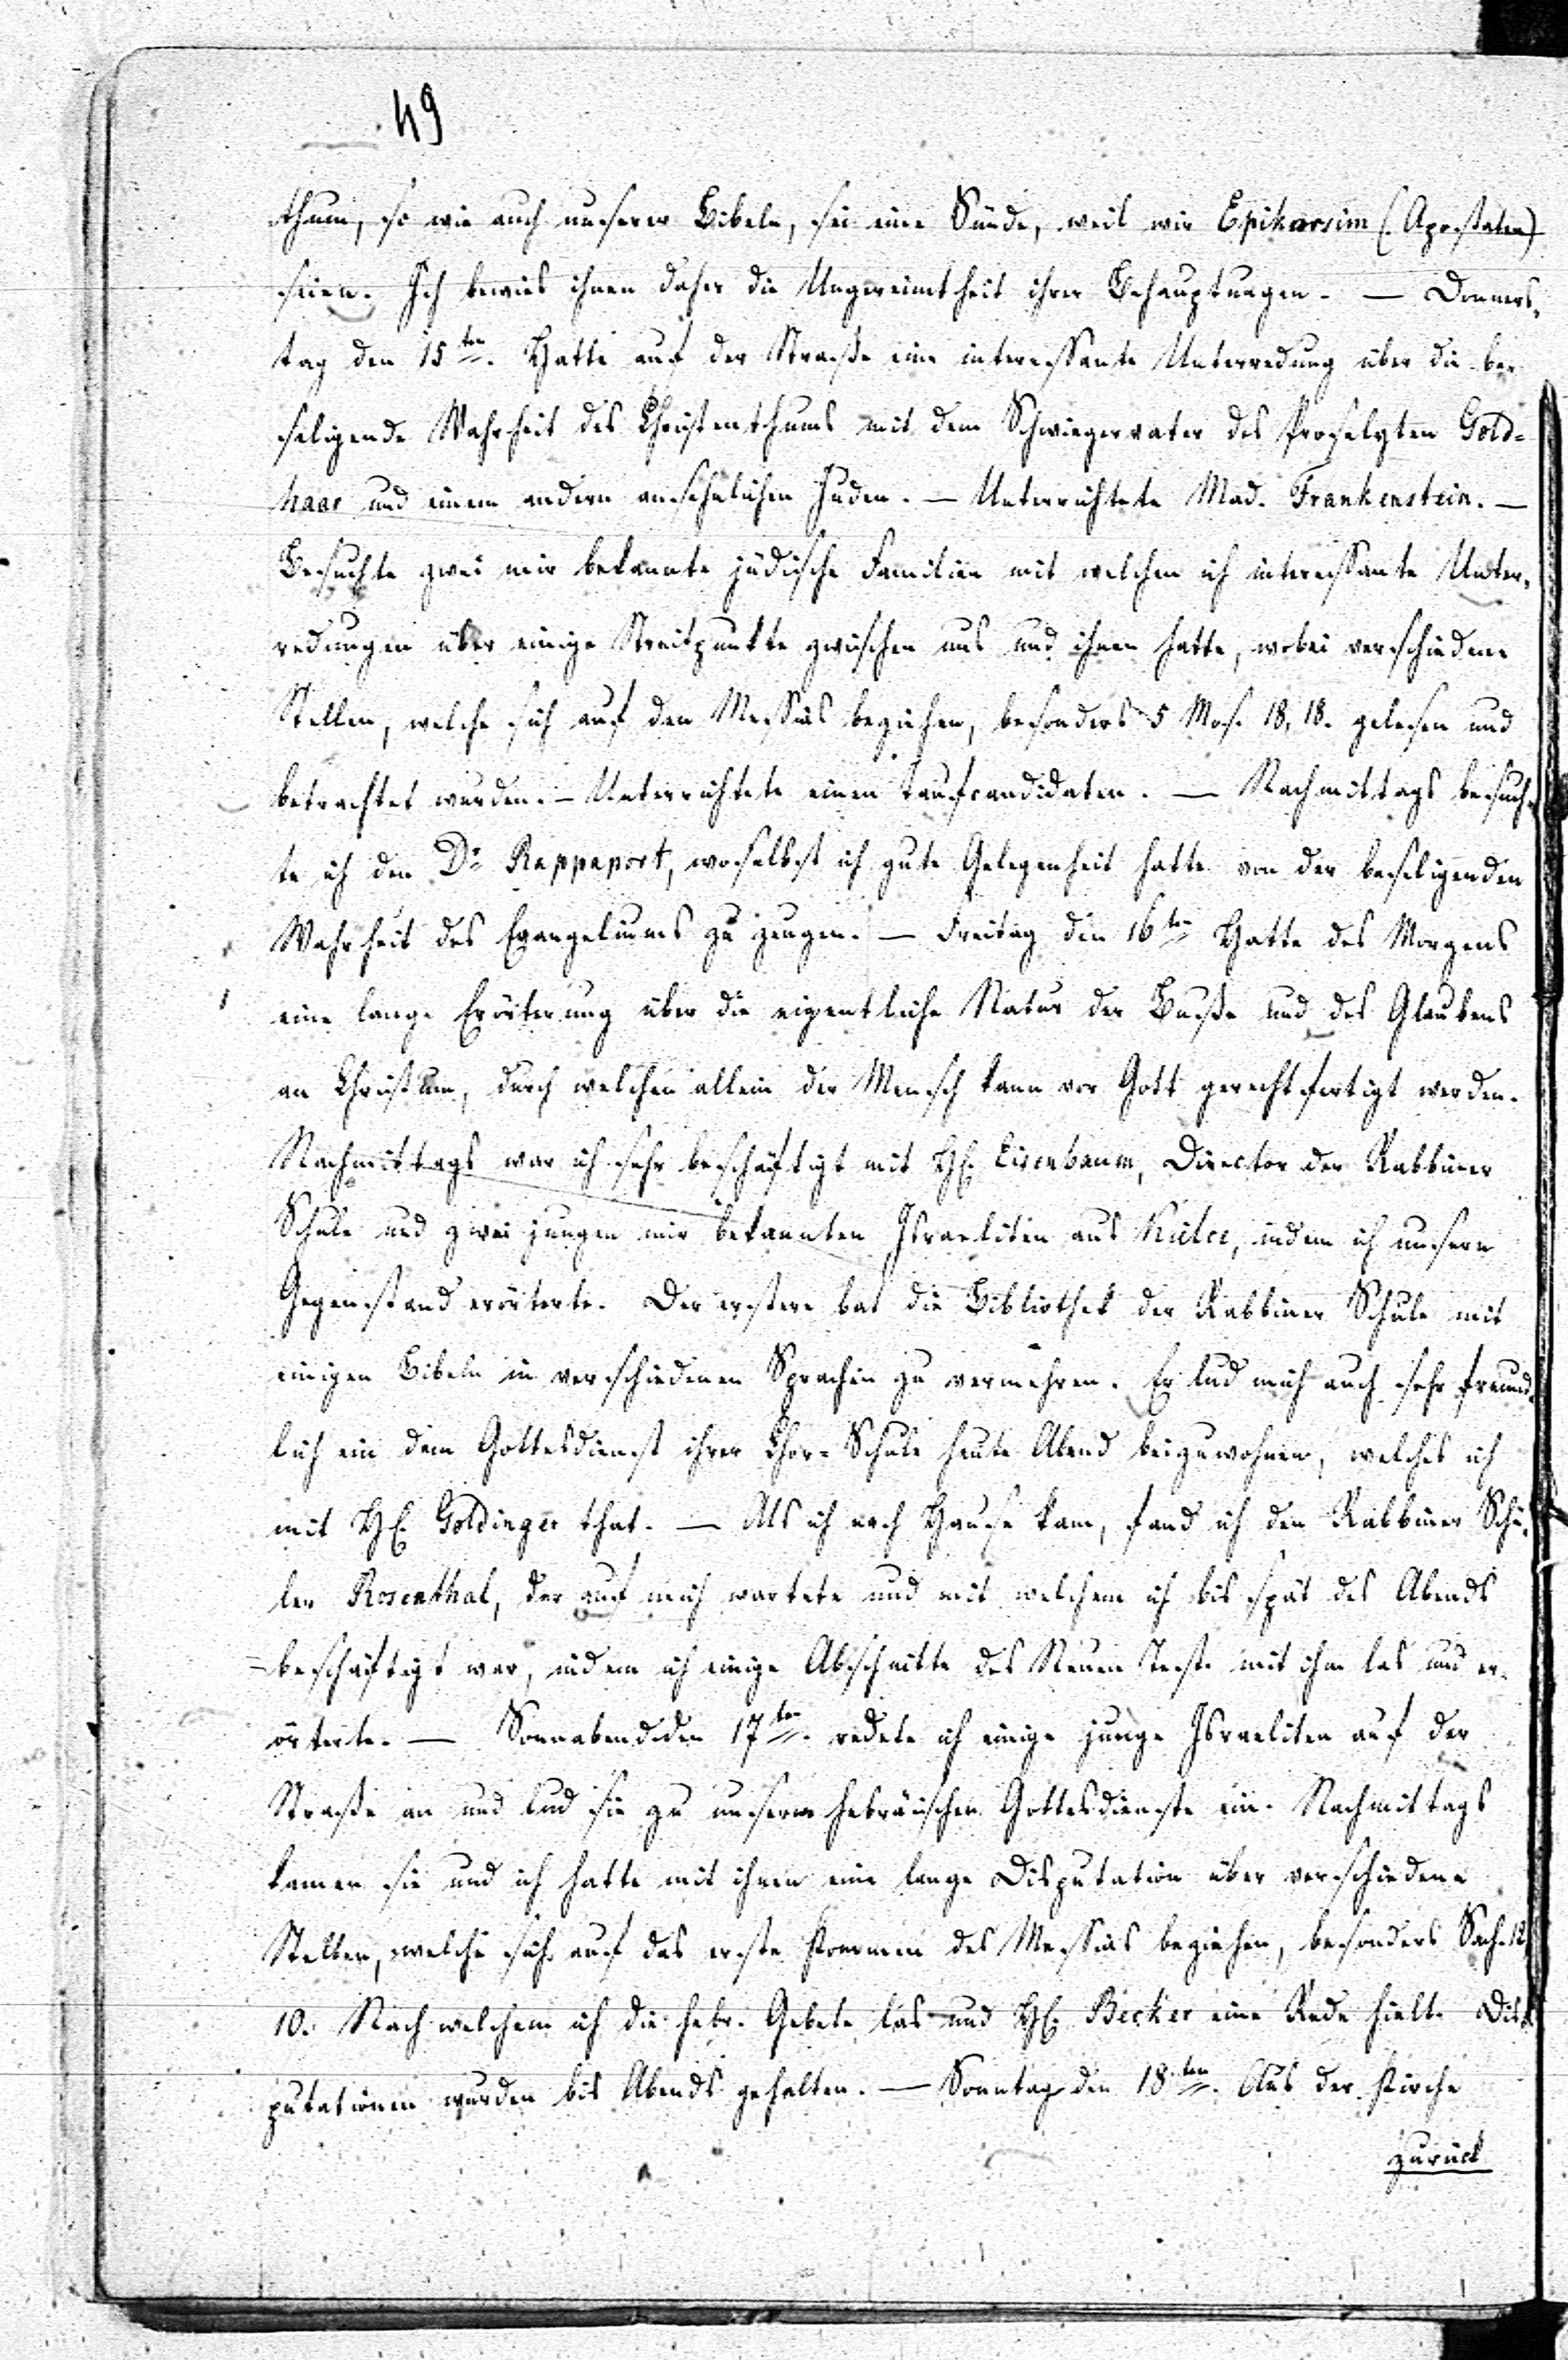 49
thum, so wie auch unserer Bibeln, sei eine Sünde, weil wir Epikorsim (Apostaten)
seien. Ich bewies ihnen daher die Ungereimtheit ihrer Behauptungen. — Donners-
tag den 15ten. Hatte auf der Straße eine interessante Unterredung über die be-
seligende Wahrheit des Christenthums mit dem Schwiegervater des Proselyten Gold-
haar und einem andern ansehnlichen Juden. — Unterrichtete Mad. Frankenstein. —
Besuchte zwei mir bekannte jüdische Familien mit welchen ich interessante Unter-
redungen über einige Streitpunkte zwischen uns und ihnen hatte, wobei verschiedene
Stellen, welche sich auf den Messias beziehen, besonders 5 Mos. 18, 18. gelesen und
betrachtet wurden. — Unterrichtete einen Taufcandidaten. — Nachmittags besuch-
te ich den Dr Rappaport, woselbst ich gute Gelegenheit hatte von der beseligenden
Wahrheit des Evangeliums zu zeugen. — Freitag den 16ten Hatte des Morgens
eine lange Erörterung über die eigentliche Natur der Buße und des Glaubens
an Christum, durch welchen allein der Mensch kann vor Gott gerechtfertigt werden.
Nachmittags war ich sehr beschäftigt mit H. Eisenbaum, Director der Rabbiner
Schule und zwei jungen mir bekannten Israeliten aus Kielce, indem ich unsern
Gegenstand erörterte. Der erstere bat die Bibliothek der Rabbiner Schule mit
einigen Bibeln in verschiedenen Sprachen zu vermehren. Er lud mich auch sehr freund-
lich ein dem Gottesdienst ihrer Chor-Schule heute Abend beizuwohnen, welches ich
mit H. Goldinger that. — Als ich nach Hause kam, fand ich den Rabbiner Schü-
ler Rosenthal, der auf mich wartete und mit welchem ich bis spät des Abends
beschäftigt war, indem ich einige Abschnitte des Neuen Test. mit ihm las und er-
örterte. — Sonnabend den 17ten. redete ich einige junge Israeliten auf der
Straße an und lud sie zu unserm hebräischen Gottesdienste ein. Nachmittags
kamen sie und ich hatte mit ihnen eine lange Disputation über verschiedene
Stellen, welche sich auf das erste Kommen des Messias beziehen, besonders Sach. 12,
10. Nach welchem ich die hebr. Gebete las und H. Becker eine Rede hielt. Dis-
putationen wurden bis Abends gehalten. — Sonntag den 18ten. Aus der Kirche
zurück